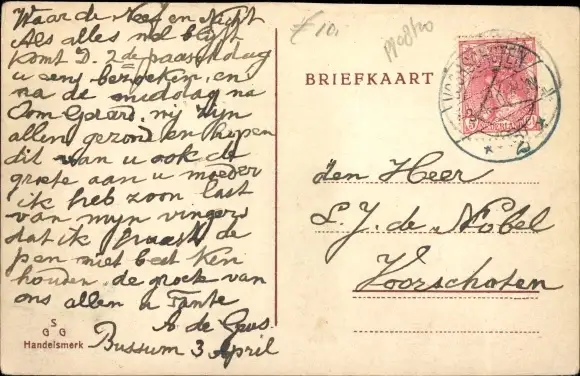 Waarde Neef en Nicht
Als alles mal blijft
komt D. 2de paaschdag
u eens bezoeken en
na de middag na
Oom Gerard. wij zijn
allen gezond en hopen
dit van u ook de
groete aan u moeder
ik heb zoon last
van mijn vingers
dat ik haast de
pen niet beet ken
houden. de groete van
ons allen u Tante
A de Goes.
Bussum 3 April
S
G G
Handelsmerk
€10,
BRIEFKAART
VOORSCHOTEN
den Heer
L. J. de Nobel
Voorschoten